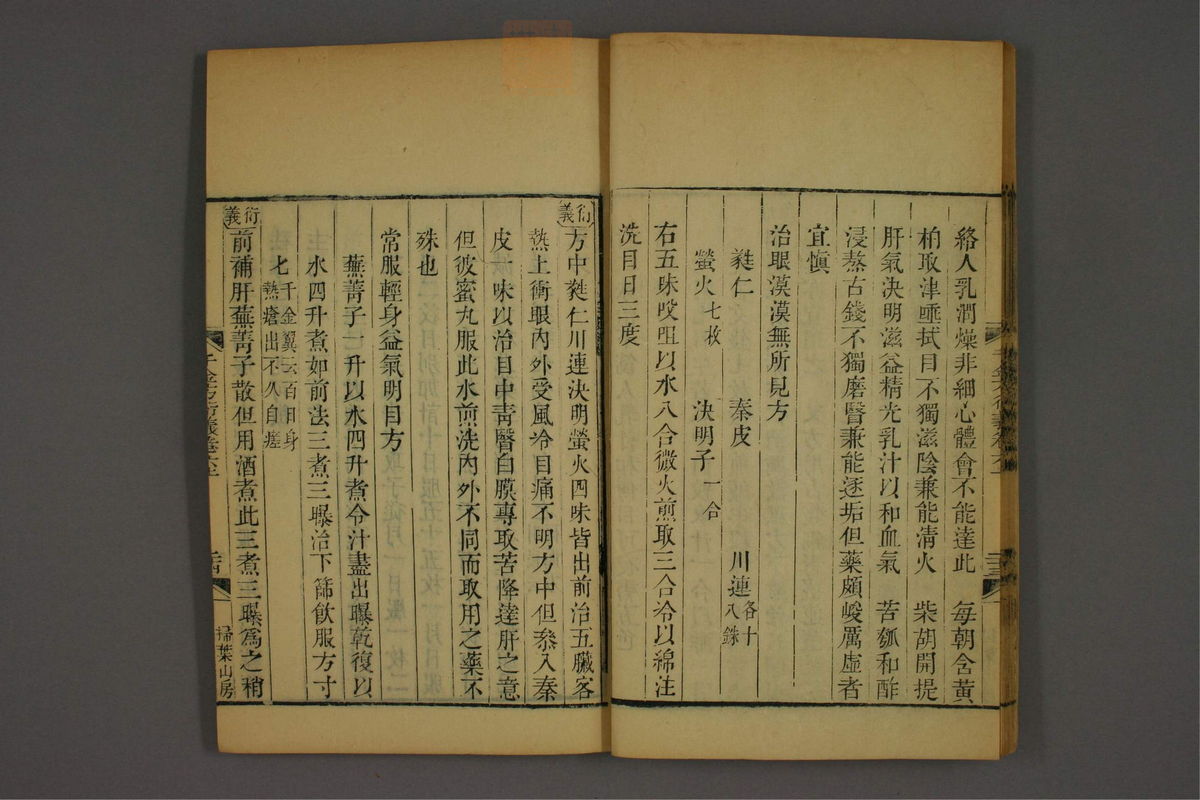 絡人乳潤燥非細心體會不能達此　每朝含黃
柏取津歃拭目不獨滋陰兼能清火　柴胡開提
肝氣決明滋益精光乳汁以和血氣　苦瓠和酢
浸熬古錢不獨磨瞖兼能逐垢但藥頗峻厲虛者
宜慎
治眼漠漠無所見方
蕤仁　秦皮　川連各十八銖
螢火七枚　決明子一合
右五味㕮咀以水八合微火煎取三合冷以綿注
洗目日三度
衍義 方中蕤仁川連決明螢火四味皆出前治五臟客
熱上衝眼內外受風冷目痛不明方中但忝入秦
皮一味以治目中青瞖白膜專取苦降達肝之意
但彼蜜丸服此水煎洗內外不同而取用之藥不
殊也
常服輕身益氣明目方
蕪菁子一升以水四升煮令汁盡出曝乾復以
水四升煮如前法三煮三曝治下篩飲服方寸
七千金翼云百日身熱瘡出不久自瘥
衍義 前補肝蕪菁子散但用酒煮此三煮三曝為之稍
掃葉山房